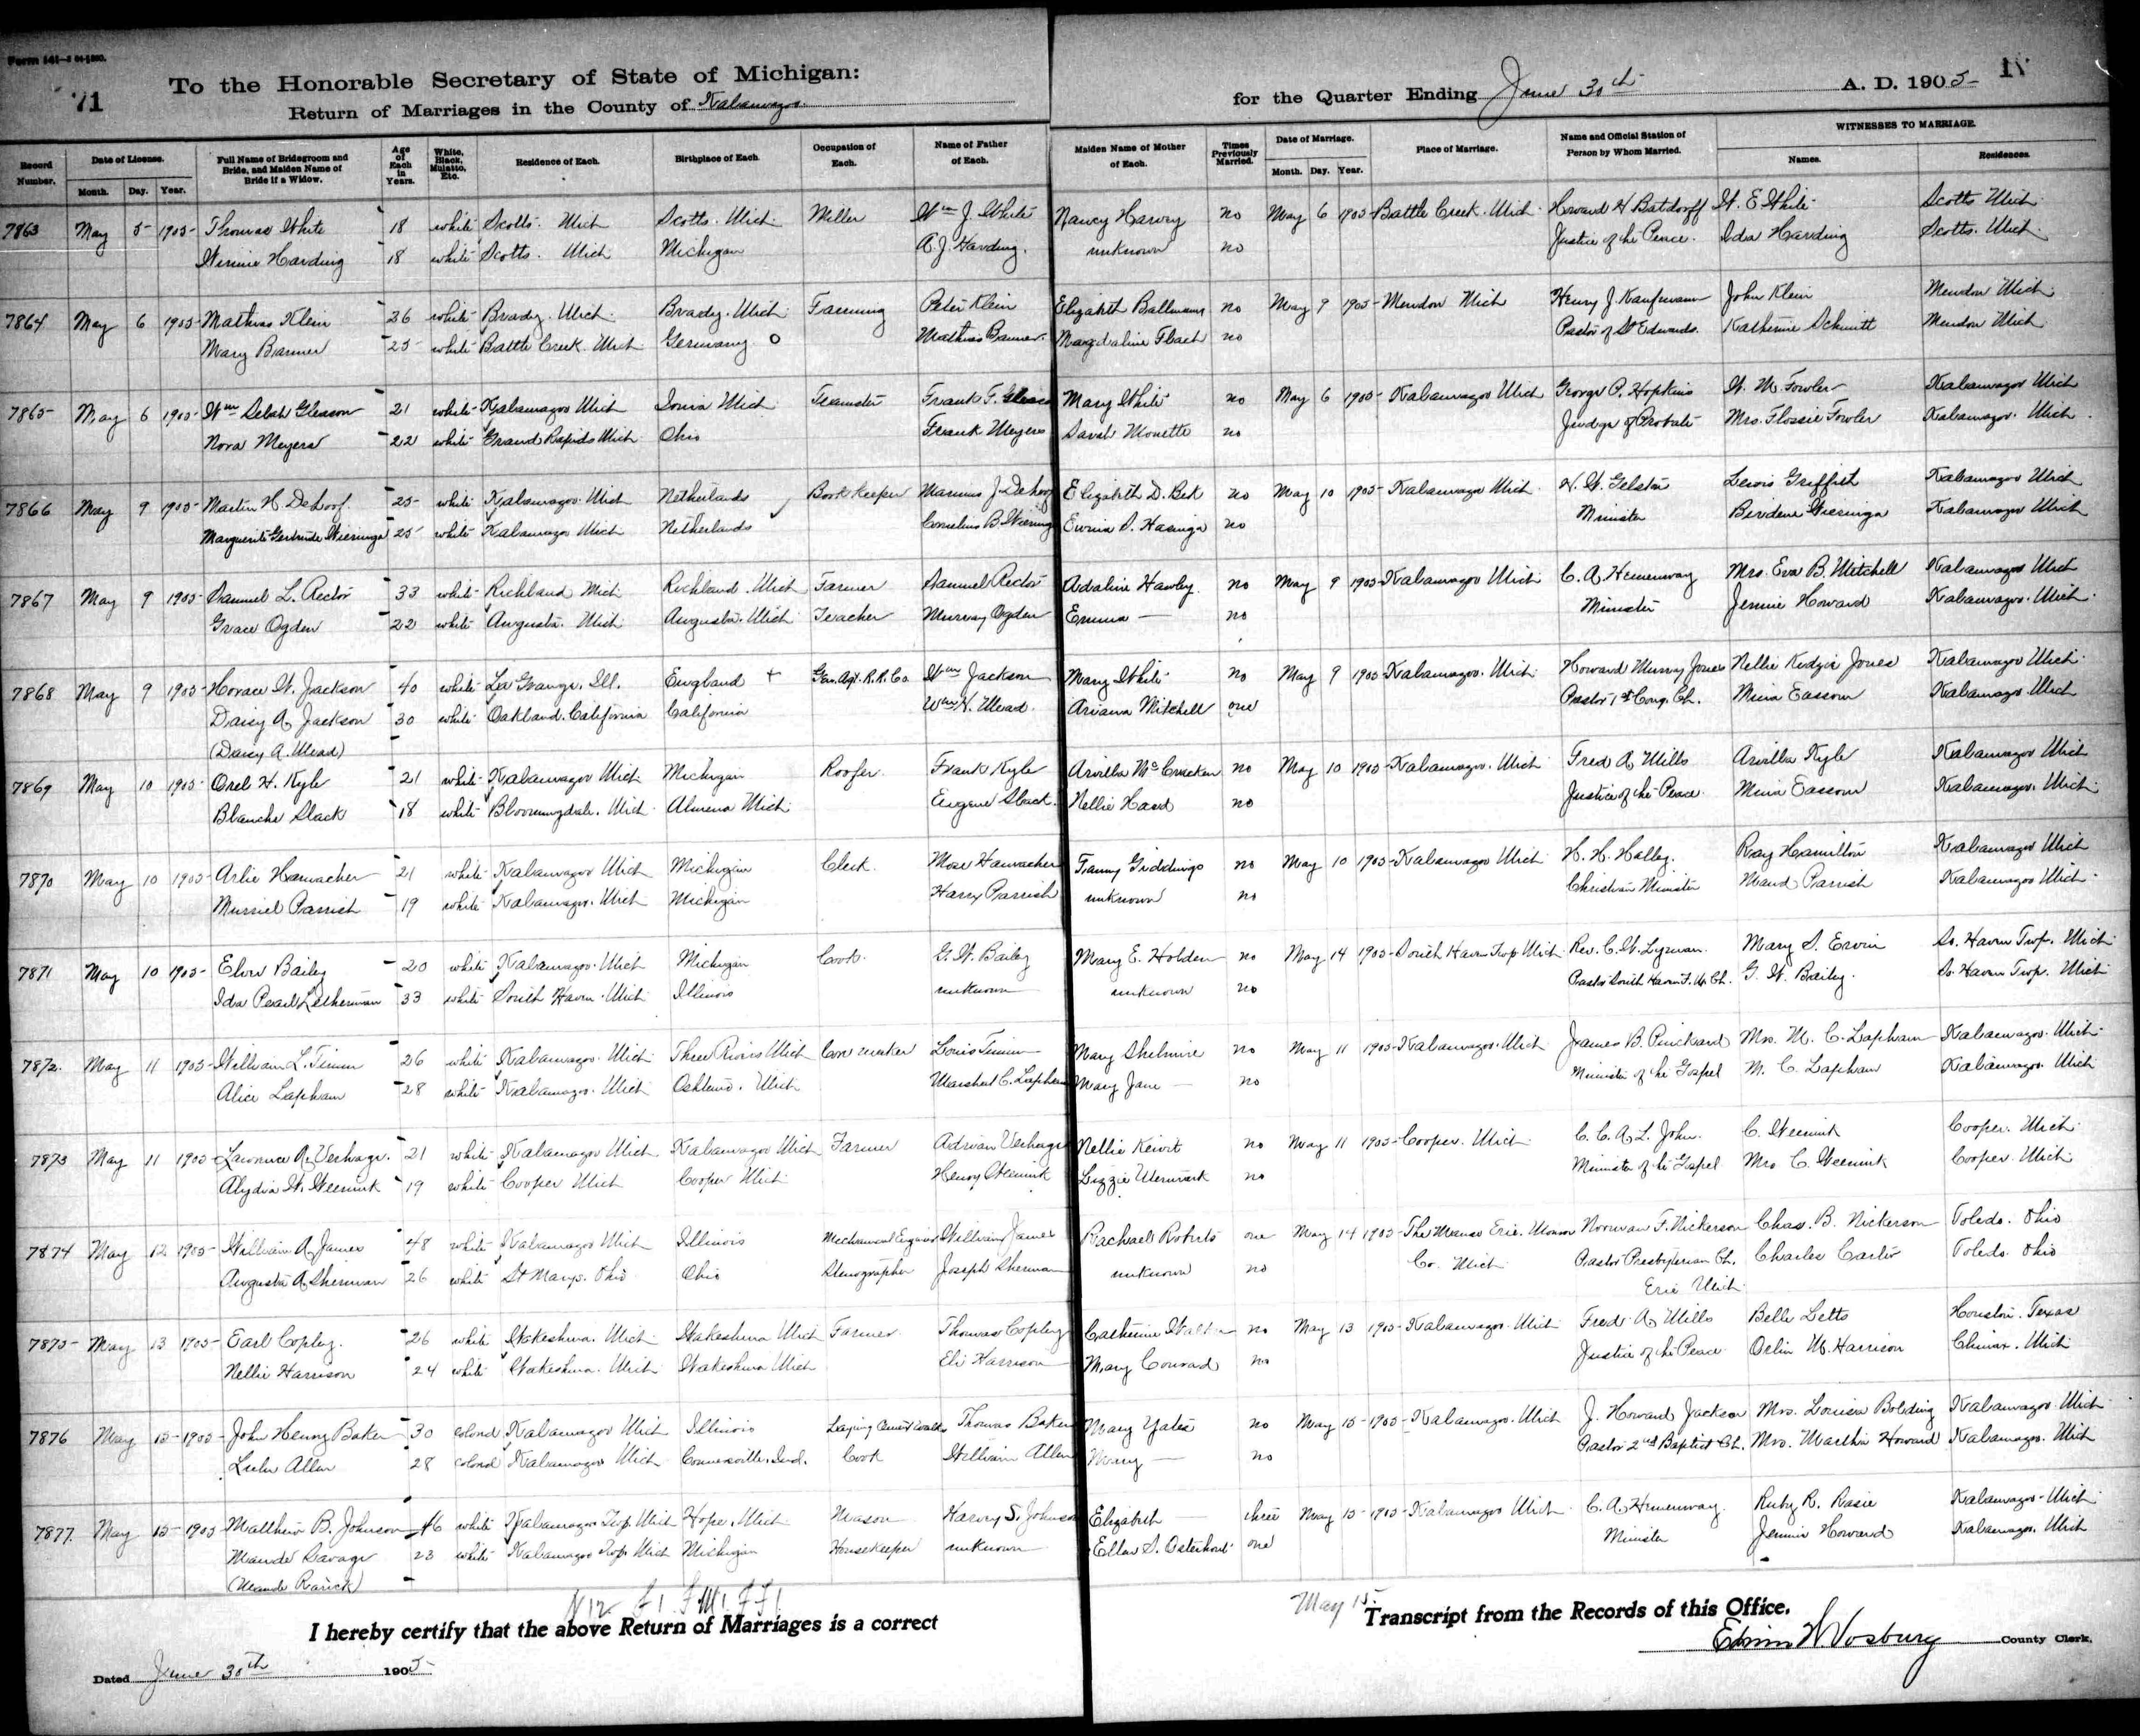 Form 141
71
To the Honorable Secretary of State of Michigan:
Return of Marriages in the County of Kalamazoo
for the Quarter Ending June 30th A. D. 1905
Record Number. Date of License. Month. Day. Year. Full Name of Bridegroom and Bride, and Maiden Name of Bride if a Widow. Age of Each in Years. White, Black, Mulatto, Etc. Residence of Each. Birthplace of Each. Occupation of Each. Name of Father of Each. Maiden Name of Mother of Each. Times Previously Married. Date of Marriage. Month. Day. Year. Place of Marriage. Name and Official Station of Person by Whom Married. WITNESSES TO MARRIAGE. Names. Residences.
7863 May 5 1905 Thomas White 18 white Scotts. Mich Scotts. Mich Miller Wm J. White Nancy Harvey no May 6 1905 Battle Creek. Mich Howard H Batdorff W. E White Scotts Mich
Winnie Harding 18 white Scotts. Mich Michigan A. J. Harding. unknown no Justice of the Peace. Ida Harding Scotts. Mich
7864 May 6 1905 Mathias Klein 36 white Brady. Mich Brady. Mich Farming Peter Klein Elizabeth Ballmann no May 9 1905 Mendon Mich Henry J. Kaufmann John Klein Mendon Mich
Mary Banner 25 white Battle Creek. Mich Germany Mathias Banner Magdaline Flach no Pastor of St Edwards. Katherine Schmitt Mendon Mich
7865 May 6 1905 Wm Selah Gleason 21 white Kalamazoo Mich Ionia Mich Teamster Frank F. Gleason Mary White no May 6 1905 Kalamazoo Mich George P. Hopkins W. M. Fowler Kalamazoo Mich
Nora Meyers 22 white Grand Rapids Mich Ohio Frank Meyers Sarah Monette no Judge of Probate Mrs. Flossie Fowler Kalamazoo. Mich
7866 May 9 1905 Martin H. DeHoof 25 white Kalamazoo Mich Netherlands Book keeper Marinus J. DeHoof Elizabeth D. Bek no May 10 1905 Kalamazoo Mich H. W. Gelston Lewis Griffith Kalamazoo Mich
Marguerite Gertrude Wieringa 25 white Kalamazoo Mich Netherlands Cornelius B. Wieringa S. Hasinga no Minister Berdene Wieringa Kalamazoo Mich
7867 May 9 1905 Samuel L. Rector 33 white Richland Mich Richland. Mich Farmer Samuel Rector Adaline Hawley no May 9 1905 Kalamazoo Mich C. A. Hemenway Mrs. Eva B. Mitchell Kalamazoo Mich
Grace Ogden 22 white Augusta. Mich Augusta. Mich Teacher Murray Ogden Emma — no Minister Jennie Howard Kalamazoo. Mich
7868 May 9 1905 Horace W. Jackson 40 white La Grange. Ill. England + Gen. Agt. R. R. Co. Wm Jackson Mary White no May 9 1905 Kalamazoo. Mich Howard Murray Jones Nellie Kedzie Jones Kalamazoo Mich
Daisy A. Jackson 30 white Oakland. California California Wm H. Mead. Ariana Mitchell one Pastor 1st Cong. Ch. Mina Eassom Kalamazoo Mich
(Daisy A. Mead)
7869 May 10 1905 Orel H. Kyle 21 white Kalamazoo Mich Michigan Roofer Frank Kyle Arvilla McCracken no May 10 1905 Kalamazoo. Mich Fred A. Mills Arvilla Kyle Kalamazoo Mich
Blanche Slack 18 white Bloomingdale. Mich Almena Mich Eugene Slack Nellie Hand no Justice of the Peace. Mina Eassom Kalamazoo. Mich
7870 May 10 1905 Arlie Hamacher 21 white Kalamazoo Mich Michigan Clerk. Mose Hamacher Fanny Giddings no May 10 1905 Kalamazoo Mich H. H. Halley. Ray Hamilton Kalamazoo Mich
Murriel Parrish 19 white Kalamazoo. Mich Michigan Harry Parrish unknown no Christian Minister Maud Parrish Kalamazoo Mich
7871 May 10 1905 Elvin Bailey 20 white Kalamazoo Mich Michigan Cook. G. W. Bailey Mary E. Holden no May 14 1905 South Haven Twp Mich Rev. C. W. Lyman Mary S. Ervin So. Haven Twp. Mich
Ida Pearl Letherman 33 white South Haven. Mich Illinois unknown unknown no Pastor South Haven F. W. Ch. G. W. Bailey. So. Haven Twp. Mich
7872 May 11 1905 William L. Timm 26 white Kalamazoo. Mich Three Rivers Mich Core maker Louis Timm Mary Shelmire no May 11 1905 Kalamazoo. Mich James B. Pinckard Mrs. M. C. Lapham Kalamazoo. Mich
Alice Lapham 28 white Kalamazoo. Mich Oshtemo. Mich Marshal C. Lapham Mary Jane — no Minister of the Gospel M. C. Lapham Kalamazoo. Mich
7873 May 11 1905 Lawrence A. Verhage. 21 white Kalamazoo Mich Kalamazoo Mich Farmer Adrian Verhage Nellie no May 11 1905 Cooper. Mich C. C. A. L. John. C. Weenink Cooper. Mich
Alydia W. Weenink 19 white Cooper Mich Cooper Mich Henry Weenink Lizzie no Minister of the Gospel Mrs C. Weenink Cooper. Mich
7874 May 12 1905 William A. James 48 white Kalamazoo Mich Illinois Mechanical Engineer William James Rachael Roberts one May 14 1905 The Manse Erie. Monroe Norman F. Nickerson Chas. B. Nickerson Toledo. Ohio
Augusta A. Sherman 26 white St Marys. Ohio Ohio Stenographer Joseph Sherman unknown no Co. Mich Pastor Presbyterian Ch. Charles Carter Toledo Ohio
Erie Mich
7875 May 13 1905 Earl Copley. 26 white Wakeshma. Mich Wakeshma Mich Farmer. Thomas Copley Catherine no May 13 1905 Kalamazoo. Mich Fred. A. Mills Belle Letts Houston. Texas
Nellie Harrison 24 white Wakeshma. Mich Wakeshma Mich Eli Harrison Mary Conrad no Justice of the Peace Orlin M. Harrison Climax. Mich
7876 May 15 1905 John Henry Baker 30 colored Kalamazoo Mich Illinois Laying Cement Walks Thomas Baker Mary Yates no May 15 1905 Kalamazoo. Mich J. Howard Jackson Mrs. Louisa Bolding Kalamazoo. Mich
Lulu Allen 28 colored Kalamazoo Mich Connersville. Ind. Cook William Allen Mary — no Pastor 2nd Baptist Ch. Mrs. Martha Howard Kalamazoo. Mich
7877. May 15 1905 Matthew B. Johnson 46 white Kalamazoo Twp. Mich Hope. Mich Mason Harvey S. Johnson Elizabeth — three May 15 1905 Kalamazoo Mich C. A. Hemenway. Ruby R. Rasie Kalamazoo. Mich
Maude Savage 23 white Kalamazoo Twp. Mich Michigan Housekeeper unknown Ellen S. Osterhout one Minister Jennie Howard Kalamazoo. Mich
(Maude Rarick)
May 15
I hereby certify that the above Return of Marriages is a correct Transcript from the Records of this Office.
Edwin N Vosburg County Clerk.
Dated June 30th 1905